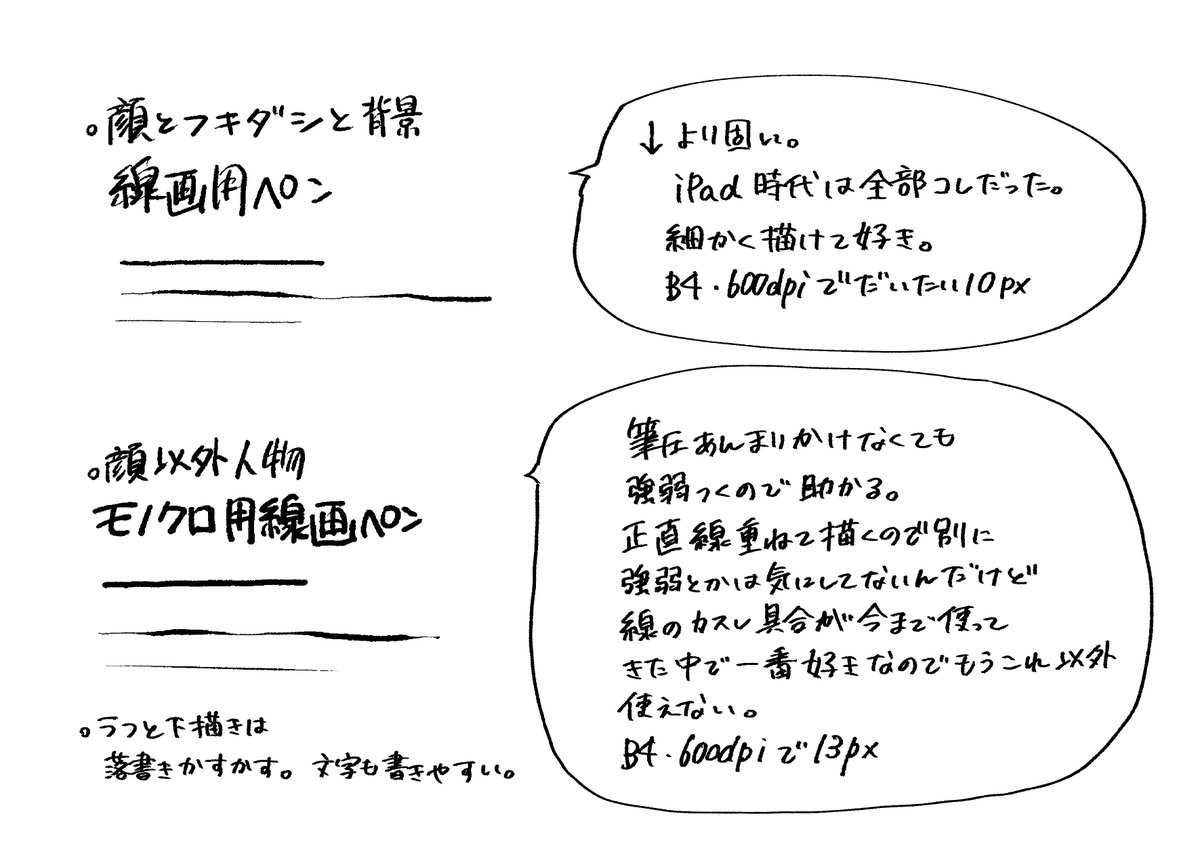 。顔とフキダシと背景
線画用ペン
↓より固い。
iPad時代は全部コレだった。
細かく描けて好き。
B4・600dpiでだいたい10px
。顔以外人物
モノクロ用線画ペン
筆圧あんまりかけなくても
強弱つくので助かる。
正直線重ねて描くので別に
強弱とかは気にしてないんだけど
線のカスレ具合が今まで使って
きた中で一番好きなのでもうこれ以外
使えない。
B4・600dpiで13px
。ラフと下描きは
落書きかすかす。文字も書きやすい。